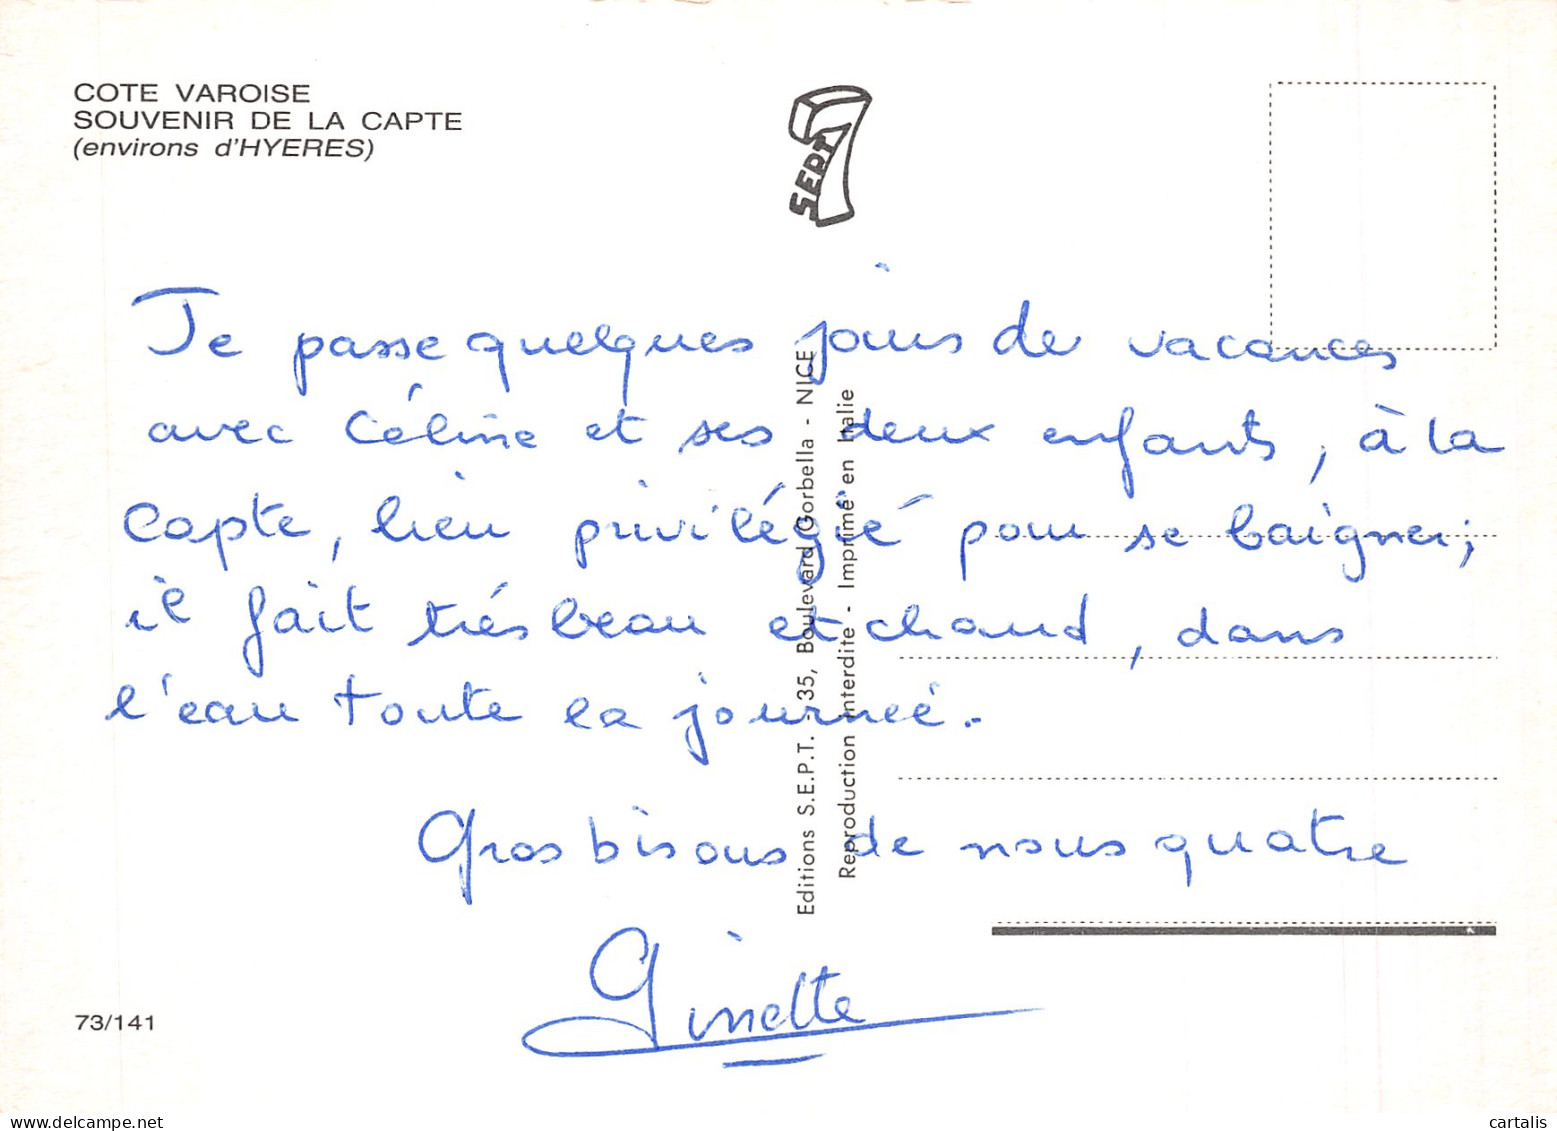 COTE VAROISE
SOUVENIR DE LA CAPTE
(environs d'HYERES)
SEPT 7
Je passe quelques jours de vacances
avec Céline et ses deux enfants, à la
Capte, lieu privilégié pour se baigner;
il fait trés beau et chaud, dans
l'eau toute la journée.
Gros bisous de nous quatre
Ginette
Editions S.E.P.T. - 35, Boulevard Gorbella - NICE
Reproduction interdite - Imprimé en Italie
73/141
cartalis